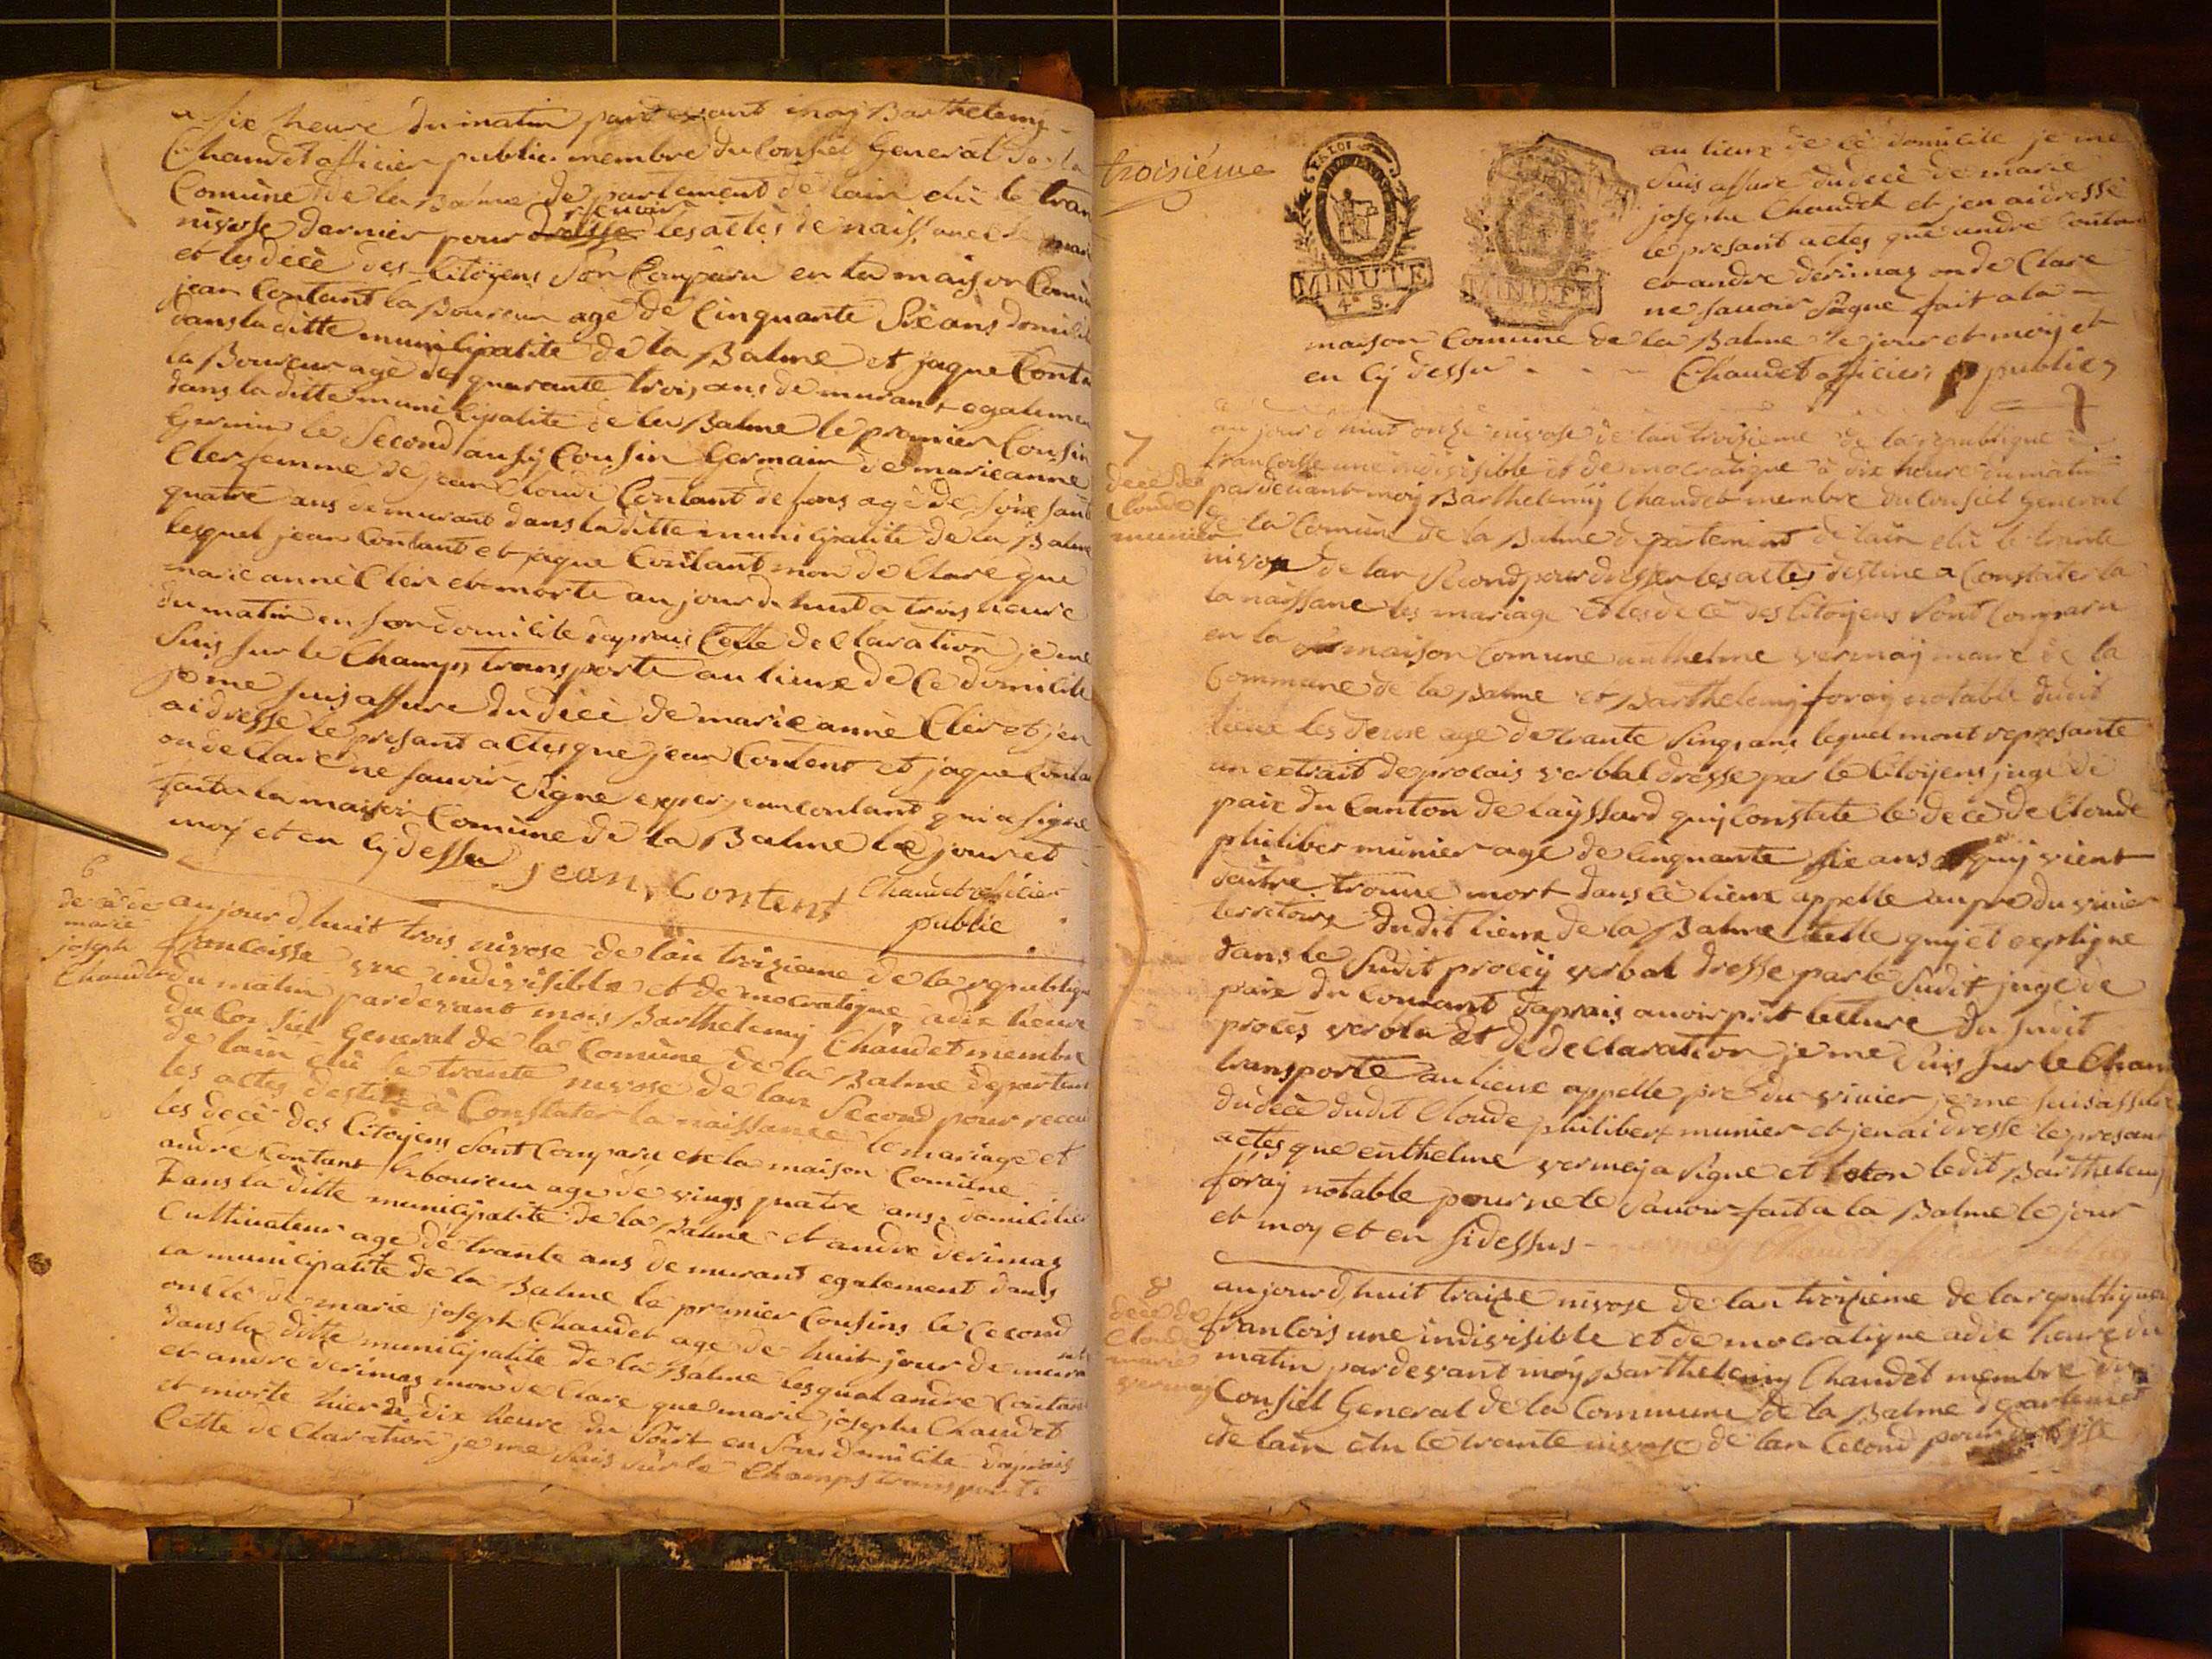 a six heure du matin pardevant moy Barthelemy
Chaudet officier public membre du Conseil General de la
Comune de la Balme departement de lain elu le tran
nivose dernier pour recevoir les actes de naissance le mari
et les décè des Citoÿens Son Comparu en la maison Comu
jean Contant laBoureur agé de Cinquante Six ans domicil
dans la ditte municipalite de la Balme et jaque Conta
la Boureur agé de quarante trois ans demurant egaleme
dans la ditte municipalite de la Balme le premier Cousin
Germain le Second ausÿ Cousin Germain de marieanne
Cler femme de jean Cloude Contant defons agè de soixsant
quatre ans demurant dans la ditte municipalite de la Balme
lesquel jean Contant et jaque Contant mon de Clare que
marie anne Cler et morte aujourdhuit a trois heure
du matin en son domicile daprais Cette declaration je me
Suis Sur le Champs transporte au lieux de Ce domicile
je me suis assure du décè de marie anne Cler et jen
ai dresse le presant actes que jean Content et jaque Conta
on de Clare ne savoir Signe jean contant qui a signe
fait a la maison Comune de la Balme le jour et
moy et en cy dessu jean Content Chaudet officier
public
6
decè de
marie
joseph
Chaudet
aujourd,huit trois nivose de lan troizieme de la republique
francoisse une indivisible et democratique adix heure
du matin pardevant mois Barthelemy Chaudet membre
du Consiel General de la Comune de la Balme departeme
de lain élu le trante nivose de lan Second pour recev
les actes destine à Constater la naissance le mariage et
les decè des Citoyens Sont Comparu en la maison Comune
andre Contant laboureur age de vings quatre ans domicilie
Dans la ditte municipalite de la Balme et andre derimaz
Cultivateur age de trante ans demurant egalement dans
la municipalite de la Balme le premier Cousins le Cecond
oncle de marie joseph Chaudet age de huit jour demura
dans la ditte municipalite de la Balme lesqual andre Contant
et andre derimaz mon de Clare que marie joseph Chaudet
et morte hier à dix heure du Soirt en Son domicile daprais
Cette declaration je me Suis Sur le Champs transporte
troisiéme
LA LOI
MINUTE
4 S.
MINUTE
au lieux de ce domicile je me
Suis assure du décè de marie
joseph Chaudet et jen ai dressè
le presant actes que andre Contan
et andre derimaz on de Clare
ne savoir Signe fait a la
maison Comune de la Balme le jour et moÿ et
en Cÿ dessu - - - Chaudet officier publics
7
decè de
Cloude
munier
aujourd huit onze nivose de lan troizieme de la republique
francoisse une indivisible et democratique à dix heure du matin
pardevant moy Barthelemÿ Chaudet membre du Consiel General
de la Comune de la Balme departement de lain elu le trante
nivose de lan Second pour dresser les actes destine a Constater la
la naissance les mariage et les decè des Citoyens Sont Comparu
en la maison Comune anthelme vermaÿ maire de la
Commune de la Balme et Barthelemy foraÿ notable dudit
lieux les deux age de trante Sinq, ans lequel mont representé
un extrait de procais verbal dresse par le Citoÿens juge de
paix du Canton de layssard quy Constate le decè de Cloude
philiber munier age de Cinquante six ans quy vient
daitre trouve mort dans ce lieux appelle au pre du vivier
territoire dudit lieux de la Balme telle quy et expligne
dans le Sudit procèy verbal dresse par le Sudit juge de
paix du Courant daprais avoir prit lecture du Sudit
procès verbla et de declaration je me Suis Sur le Cham
transporte au lieux appelle pré du vivier je me suis assure
du decè dudit Cloude philibert munier et jen ai dresse le presant
actes que enthelme vermey a Signe et non ledit Barthelemy
foraÿ notable pour ne le Savoir fait a la Balme le jour
et moy et en Sidessus
8
decè de
Cloude
marie
vermaÿ
aujourd,huit traize nivose de lan troizieme de la republique
francois une indivisible et democratique adix heure du
matin pardevant moÿ Barthelemy Chaudet membre du
Consiel General de la Commune de la Balme departemet
de lain élu le trante nivose de lan Cecond pour